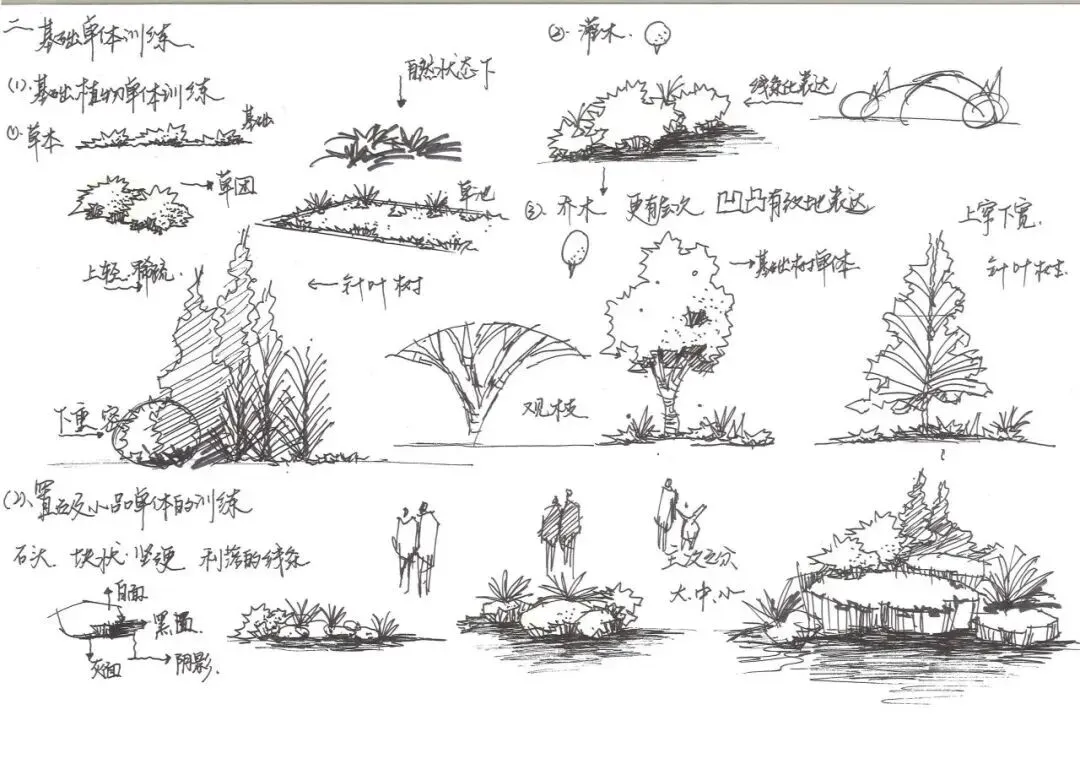 二、基础单体训练
(1)、基础植物单体训练
①草本
基础
自然状态下
草团
草池
②、灌木
线条化表达
③、乔木 更有层次 凹凸有致地表达
上窄下宽
针叶树
基础树单体
上轻 稀疏
针叶树
下重 密
观枝
(2)、置石及小品单体的训练
石头 块状 坚硬 利落的线条
主次之分
大、中、小
白面
黑面
灰面
阴影